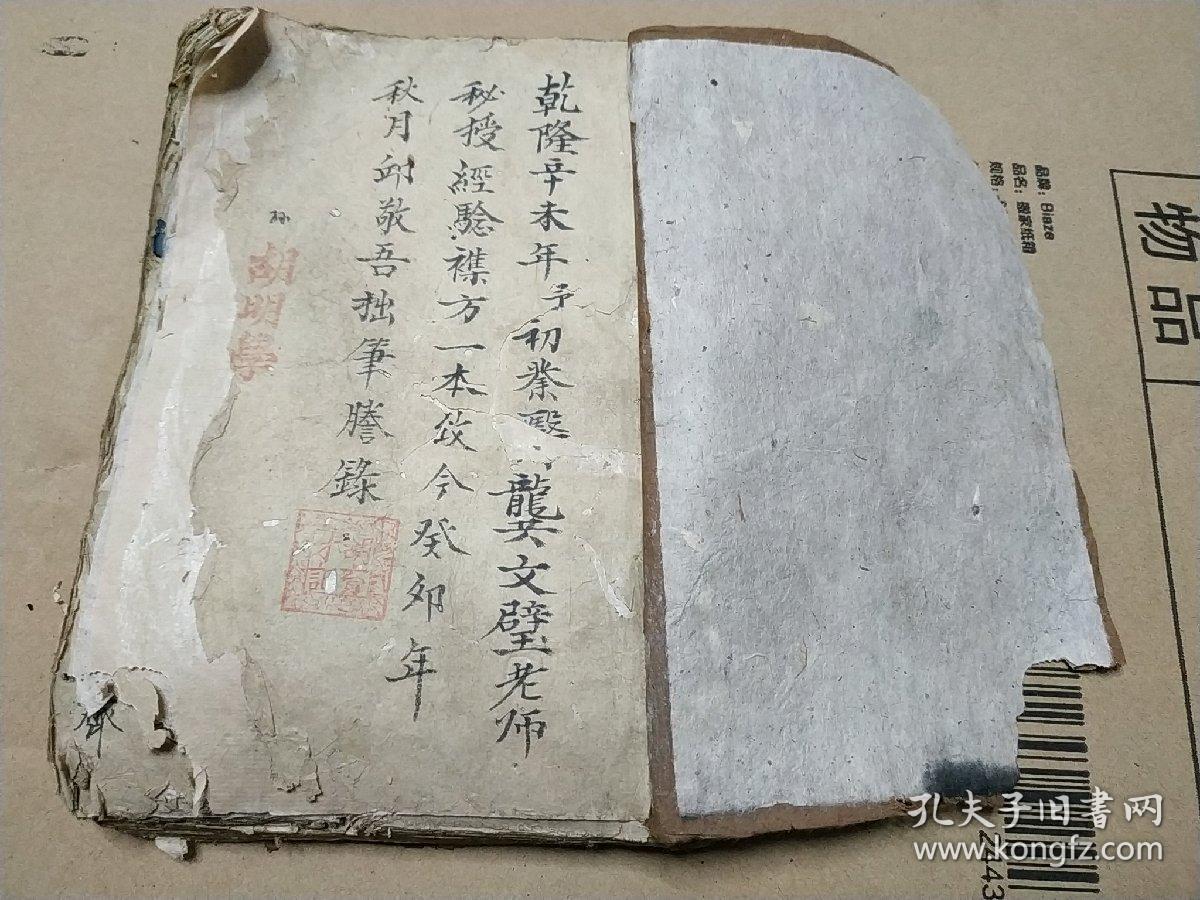 乾隆辛未年予初㭍毉龔文璧老师
秘授經驗襍方一本玫今癸夘年
秋月邱敬吾拙筆謄錄
孙
胡明學
物品
品牌：Biaze
品名：
孔夫子旧書网
www.kongfz.com
2443